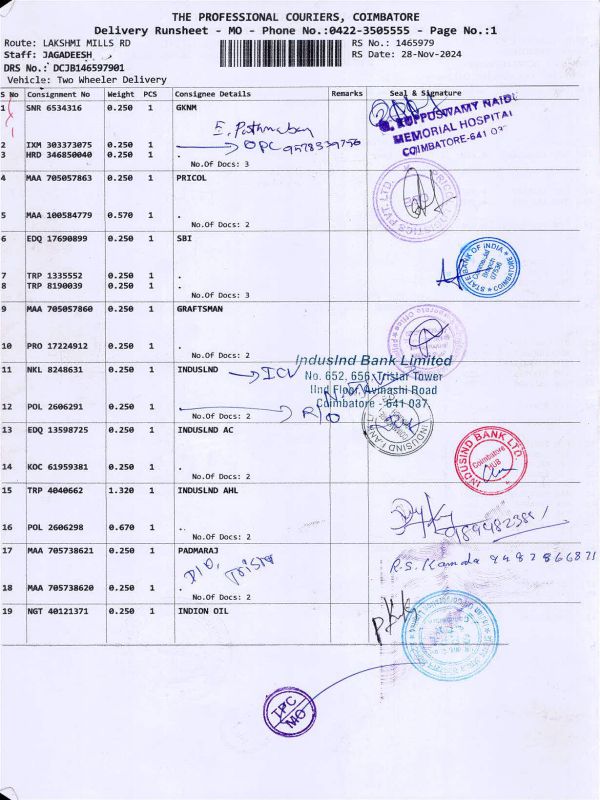 THE PROFESSIONAL COURIERS, COIMBATORE
Delivery Runsheet - MO - Phone No.:0422-3505555 - Page No.:1
Route: LAKSHMI MILLS RD RS No.: 1465979
Staff: JAGADEESH RS Date: 28-Nov-2024
DRS No.: DCJB146597901
Vehicle: Two Wheeler Delivery
S No Consignment No Weight PCS Consignee Details Remarks Seal & Signature
1 SNR 6534316 0.250 1 GKNM
KUPPUSWAMY NAIDU
MEMORIAL HOSPITAL
COIMBATORE-641 037
2 IXM 303373075 0.250 1 . OPC 9578339756
3 HRD 346850040 0.250 1 .
No.Of Docs: 3
4 MAA 705057863 0.250 1 PRICOL
5 MAA 100584779 0.570 1 .
No.Of Docs: 2
6 EDQ 17690899 0.250 1 SBI
STATE BANK OF INDIA
Branch
07536
COIMBATORE
7 TRP 1335552 0.250 1 .
8 TRP 8190039 0.250 1 .
No.Of Docs: 3
9 MAA 705057860 0.250 1 GRAFTSMAN
10 PRO 17224912 0.250 1 .
No.Of Docs: 2
IndusInd Bank Limited
11 NKL 8248631 0.250 1 INDUSLND
No. 652, 656, Tristar Tower
IInd Floor, Avinashi Road
Coimbatore - 641 037
12 POL 2606291 0.250 1
No.Of Docs: 2
13 EDQ 13598725 0.250 1 INDUSLND AC
INDUSIND BANK LTD
Coimbatore
14 KOC 61959381 0.250 1 .
No.Of Docs: 2
15 TRP 4040662 1.320 1 INDUSLND AHL
16 POL 2606298 0.670 1 .
No.Of Docs: 2
17 MAA 705738621 0.250 1 PADMARAJ
18 MAA 705738620 0.250 1 .
No.Of Docs: 2
19 NGT 40121371 0.250 1 INDION OIL
TPC
MO